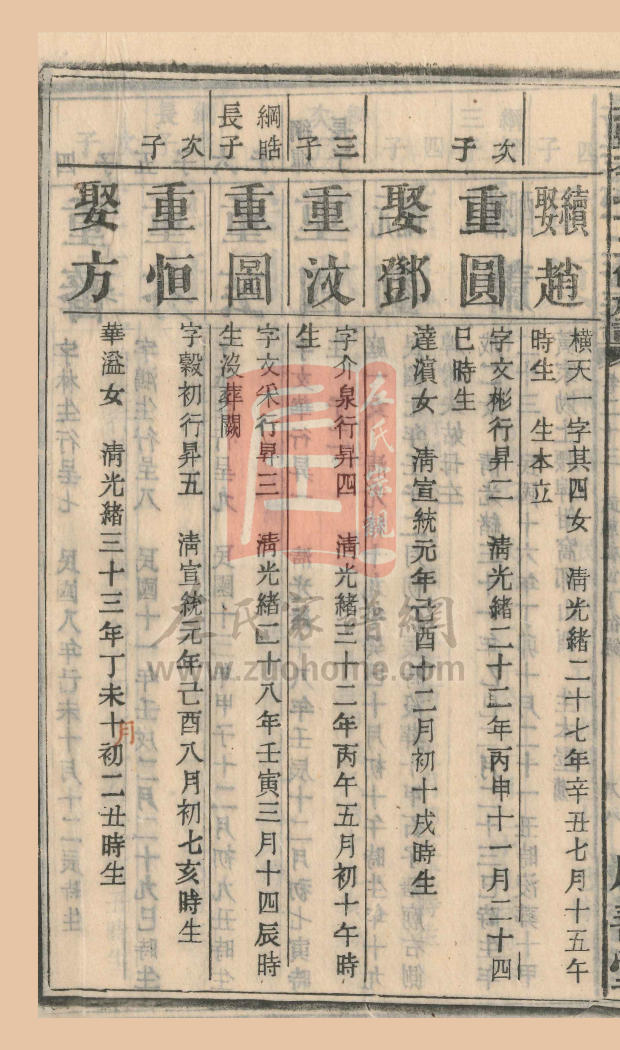 續娶趙
橫天一字其四女 清光緒二十七年辛丑七月十五午
時生 生本立
次子
重圓
字文彬行昇二 清光緒二十二年丙申十一月二十四
巳時生
娶鄧
達濱女 清宣統元年己酉十二月初十戌時生
三子
重汶
字介泉行昇四 清光緒三十二年丙午五月初十午時
生
綱晧長子
重圖
字文采行昇三 清光緒二十八年壬寅三月十四辰時
生沒葬闕
次子
重恒
字穀初行昇五 清宣統元年己酉八月初七亥時生
娶方
華溢女 清光緒三十三年丁未十月初二丑時生
左氏家譜網
www.zuohome.com